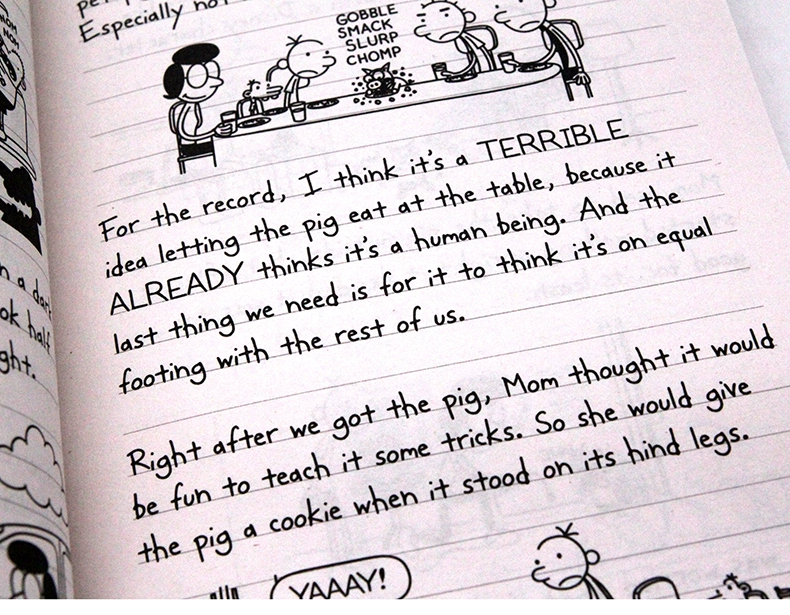 Especially no
GOBBLE
SMACK
SLURP
CHOMP
For the record, I think it's a TERRIBLE
idea letting the pig eat at the table, because it
ALREADY thinks it's a human being. And the
last thing we need is for it to think it's on equal
footing with the rest of us.
Right after we got the pig, Mom thought it would
be fun to teach it some tricks. So she would give
the pig a cookie when it stood on its hind legs.
YAAAY!
MOM
NOM
n a dar
ok half
ght.